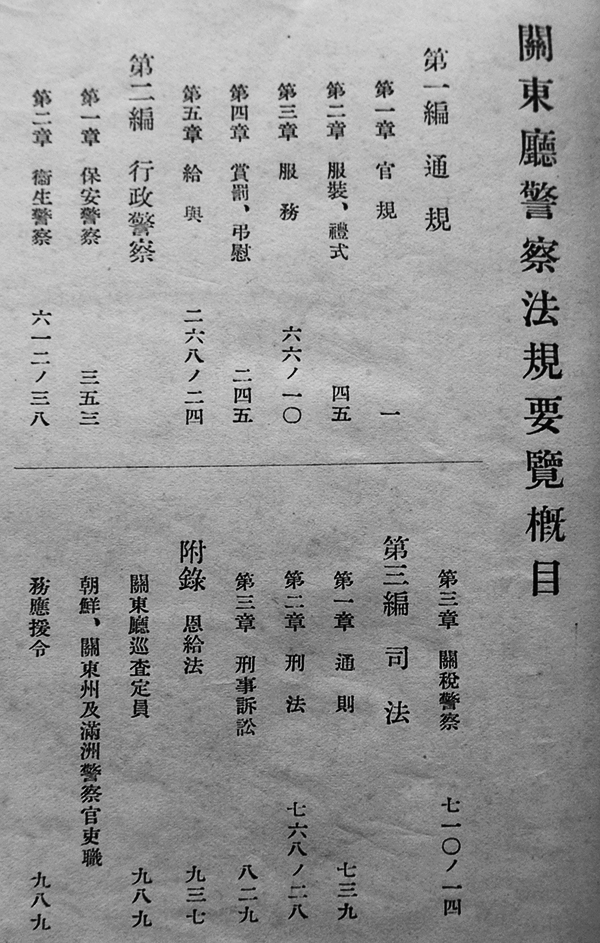 關東廳警察法規要覽概目
第一編 通規
第一章 官規 一
第二章 服裝、禮式 四五
第三章 服務 六六ノ一〇
第四章 賞罰、弔慰 二四五
第五章 給與 二六八ノ二四
第二編 行政警察
第一章 保安警察 三五三
第二章 衞生警察 六一二ノ三八
第三章 關稅警察 七一〇ノ一四
第三編 司法
第一章 通則 七三九
第二章 刑法 七六八ノ二八
第三章 刑事訴訟 八二九
附錄 恩給法 九三七
關東廳巡査定員 九八九
朝鮮、關東州及滿洲警察官吏職
務應援令 九八九